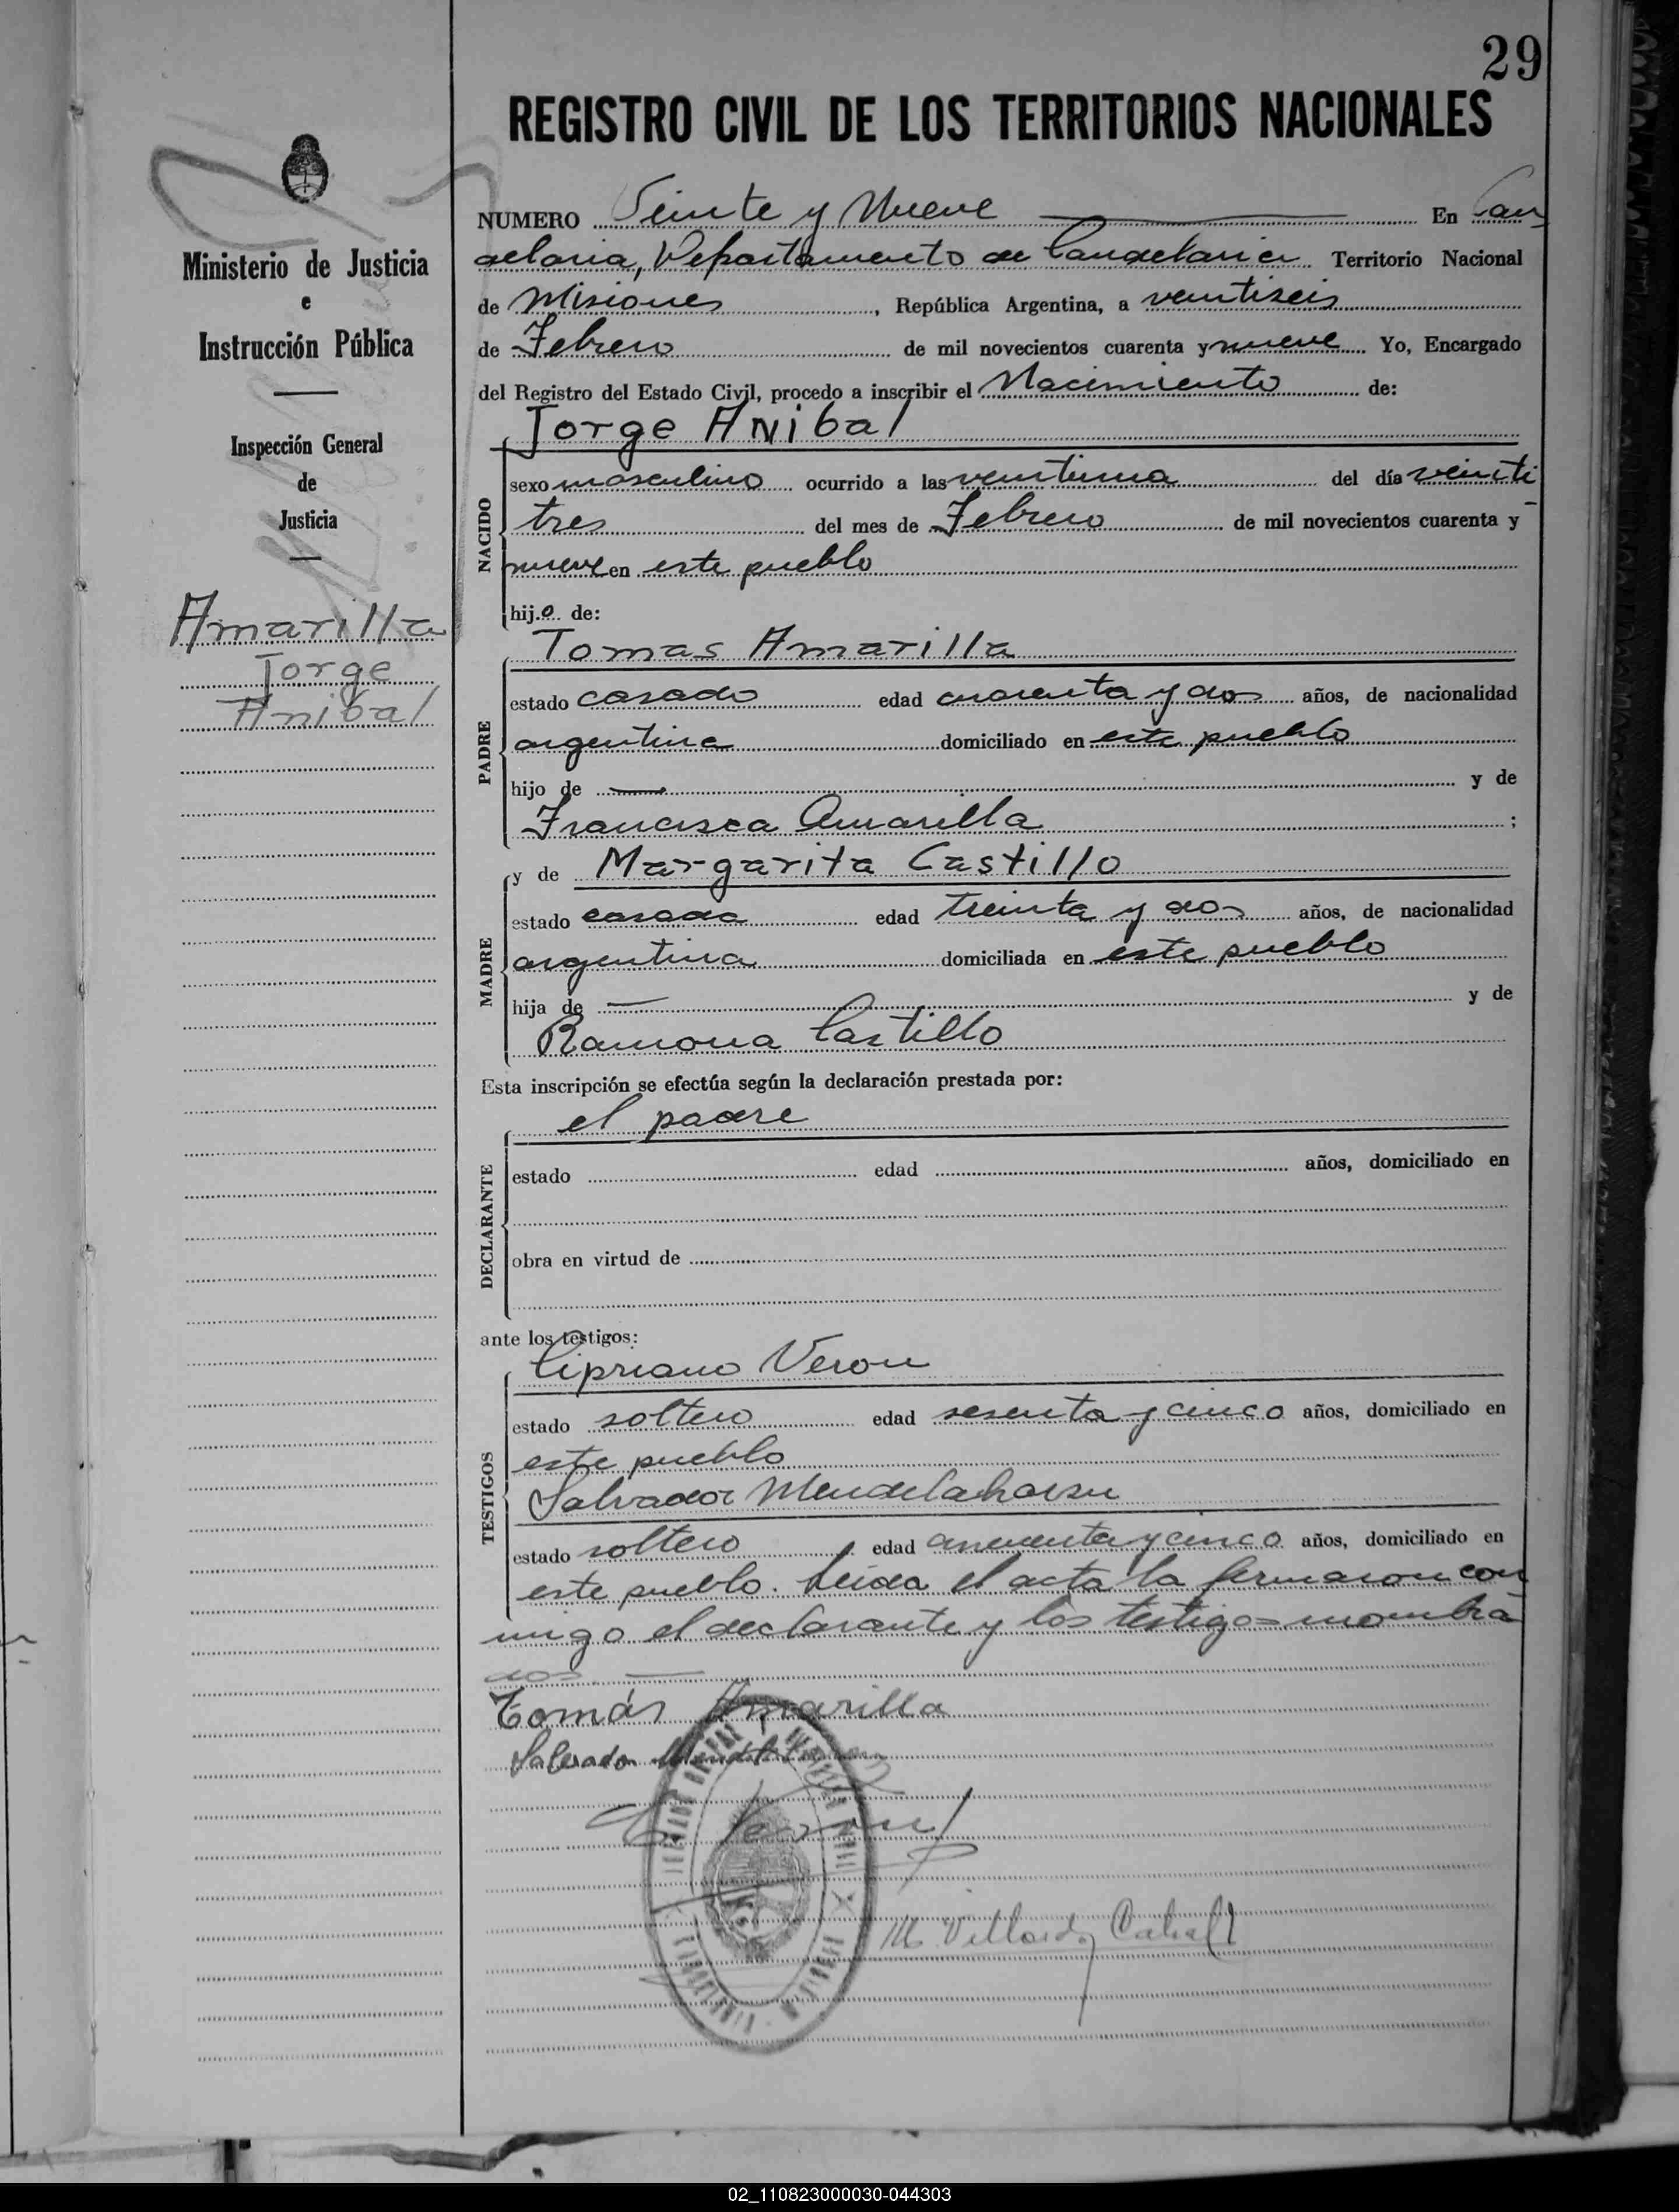 29
REGISTRO CIVIL DE LOS TERRITORIOS NACIONALES
Ministerio de Justicia
e
Instrucción Pública
Inspección General
de
Justicia
Amarilla
Jorge
Anibal
NUMERO Veinte y Nueve En Can
delaria, Departamento de Candelaria Territorio Nacional
de Misiones, República Argentina, a veintiseis
de Febrero de mil novecientos cuarenta y nueve Yo, Encargado
del Registro del Estado Civil, procedo a inscribir el Nacimiento de:
Jorge Anibal
NACIDO
sexo masculino ocurrido a las veintiuna del día veinti
tres del mes de Febrero de mil novecientos cuarenta y
nueve en este pueblo
hijo de:
Tomas Amarilla
PADRE
estado casado edad cuarenta y dos años, de nacionalidad
argentina domiciliado en este pueblo
hijo de — y de
Francisca Amarilla ;
y de Margarita Castillo
MADRE
estado casada edad treinta y dos años, de nacionalidad
argentina domiciliada en este pueblo
hija de — y de
Ramona Castillo
Esta inscripción se efectúa según la declaración prestada por:
el padre
DECLARANTE
estado edad años, domiciliado en
obra en virtud de
ante los testigos:
Cipriano Veron
TESTIGOS
estado soltero edad sesenta y cinco años, domiciliado en
este pueblo
Salvador Mendelahorzu
estado soltero edad cincuenta y cinco años, domiciliado en
este pueblo. Leida el acta la firmaron con
migo el declarante y los testigos nombra
dos. —
Tomás Amarilla
Salvador
C. Veron
M Caball
02_110823000030-044303